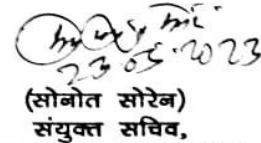 23.05.2023
(सोबोत सोरेन)
संयुक्त सचिव,